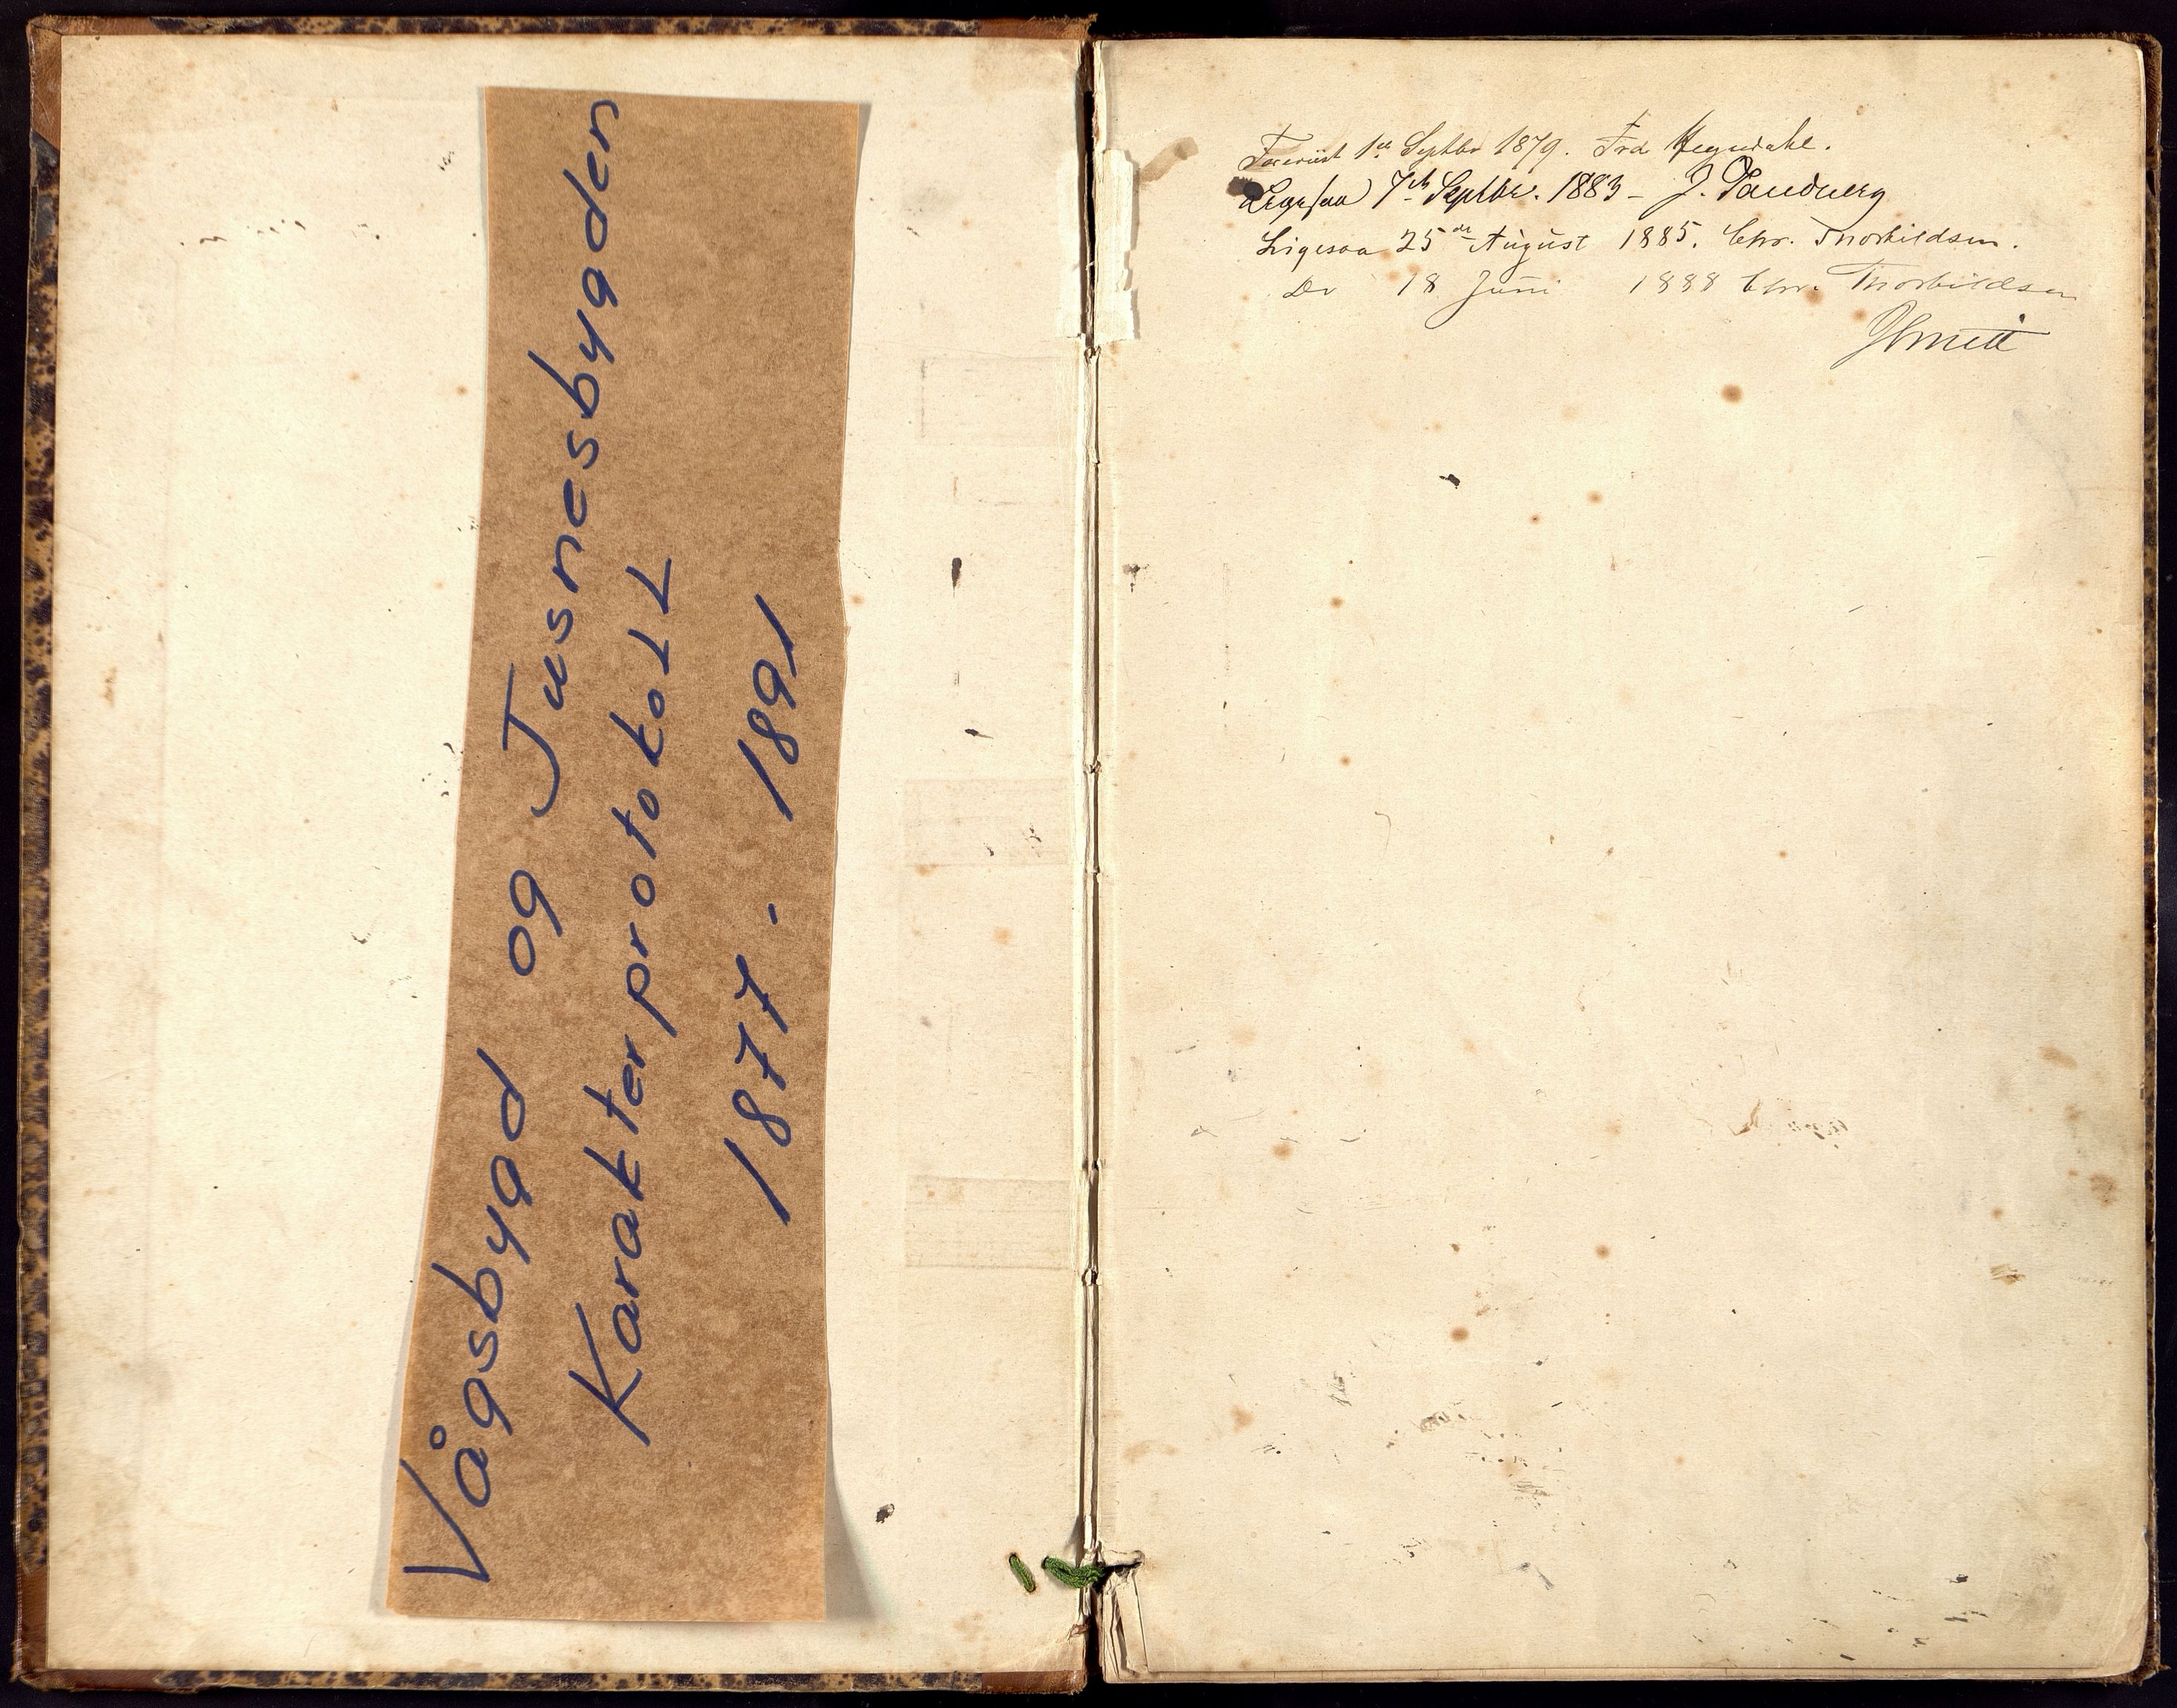 Vågsbygd og Jusnesbygden
Karakterprotokoll
1877 - 1891
Foreviist 1ste Septbr 1879. Frd
7de Septbr. 1883 - J.
Ligesaa 25de August 1885. Chr. Thorkildsen.
Do 18 Juni 1888 Chr. Thorkildsen